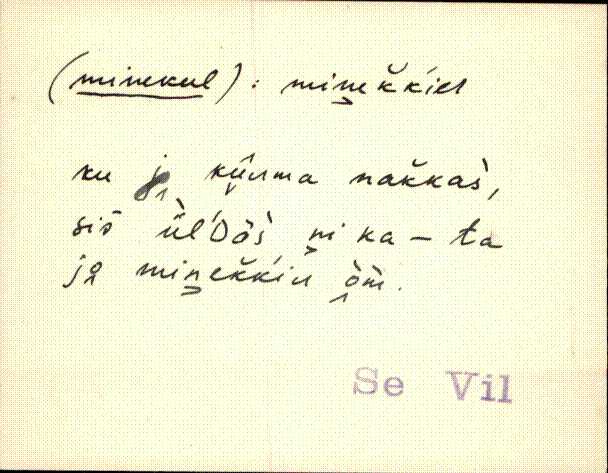 (minekul) : mine̬k̆k'iet
ku kṷ̂uma nak̆kas̀,
sis̄ ǜl'Dös̀ n̬i ka – ta
jo̭ min̬ek̆k'iu o̭m̀.
Se Vil